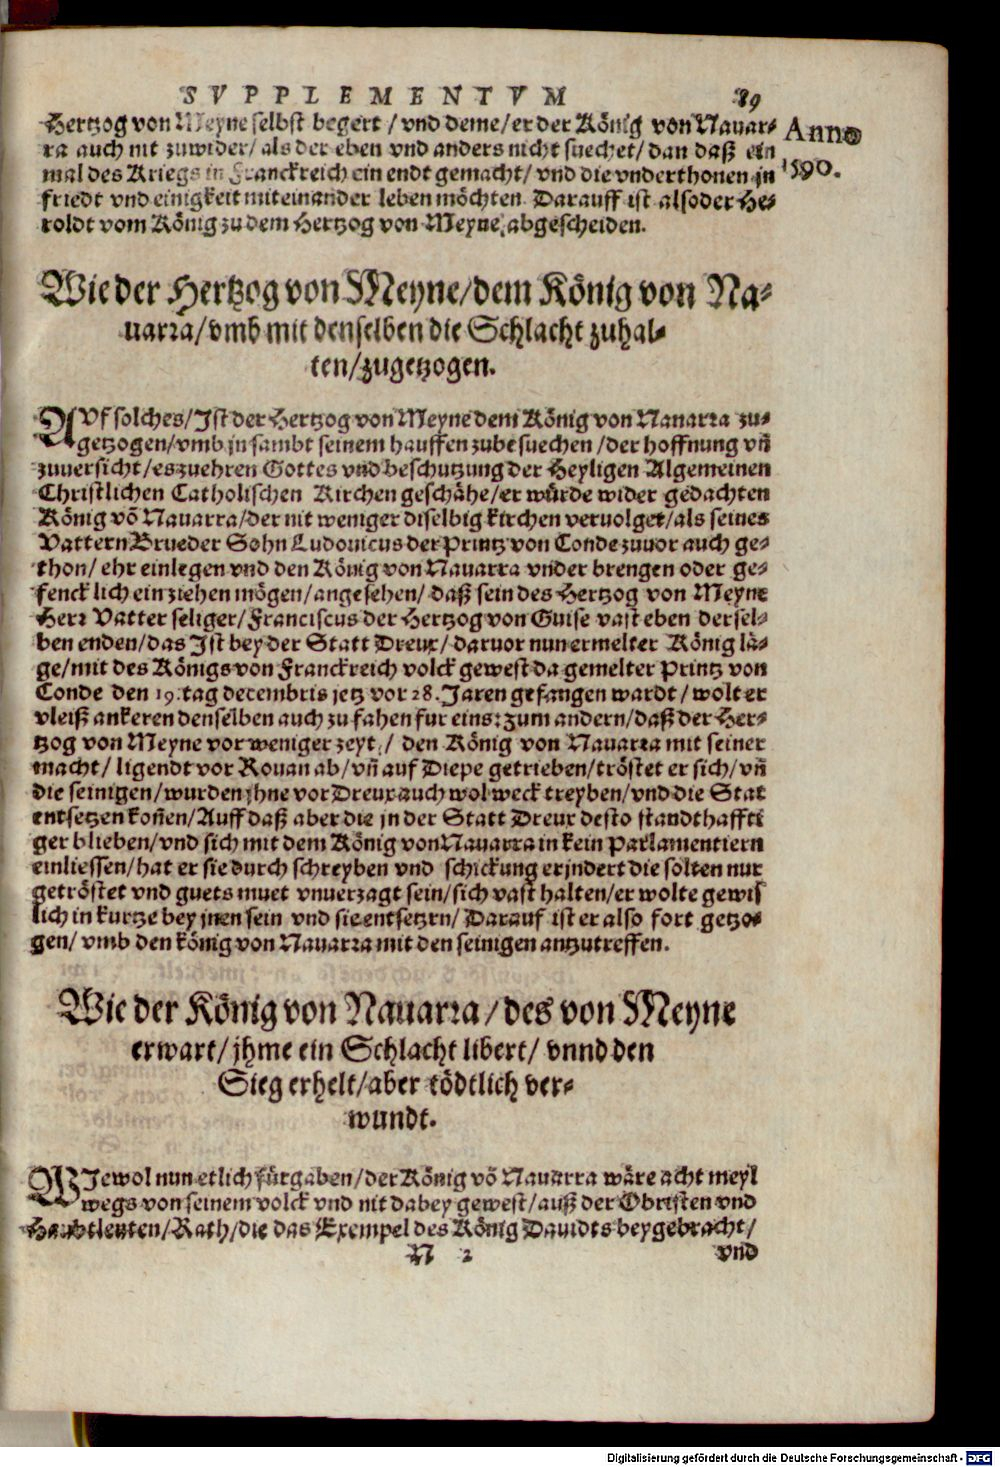 SVPPLEMENTVM 89
Hertzog von Meyne selbst begert / vnd deme / er der König von Nauar-
ra auch nit zuwider / als der eben vnd anders nicht suechet / dan daß ein
mal des Kriegs in Franckreich ein endt gemacht / vnd die vnderthonen jn
friedt vnd einigkeit miteinander leben möchten Darauff ist also der He-
roldt vom König zu dem Hertzog von Meyne, abgescheiden.
Anno
1590.
Wie der Hertzog von Meyne / dem König von Na-
uarra / vmb mit denselben die Schlacht zuhal-
ten / zugetzogen.
AVf solches / Jst der Hertzog von Meyne dem König von Nauarra zu-
getzogen / vmb jn sambt seinem hauffen zubesuechen / der hoffnung vñ
zuuersicht / es zu ehren Gottes vnd beschutzung der Heyligen Algemeinen
Christlichen Catholischen Kirchen geschähe / er würde wider gedachten
König võ Nauarra / der nit weniger diselbig kirchen veruolget / als seines
Vattern Brueder Sohn Ludouicus der Printz von Conde zuuor auch ge-
thon / ehr einlegen vnd den König von Nauarra vnder brengen oder ge-
fencklich ein ziehen mögen / angesehen / daß sein des Hertzog von Meyne
Herr Vatter seliger / Franciscus der Hertzog von Guise vast eben dersel-
ben enden / das Jst bey der Statt Dreux / daruor nun ermelter König lä-
ge / mit des Königs von Franckreich volck gewest da gemelter Printz von
Conde den 19. tag decembris jetz vor 28. Jaren gefangen wardt / wolt er
vleiß ankeren denselben auch zu fahen fur eins: zum andern / daß der Her-
tzog von Meyne vor weniger zeyt / den König von Nauarra mit seiner
macht / ligendt vor Rouan ab / vñ auf Diepe getrieben / tröstet er sich / vñ
die seinigen / wurden jhne vor Dreux auch wol weck treyben / vnd die Stat
entsetzen koñen / Auff daß aber die jn der Statt Dreux desto standthaffti
ger blieben / vnd sich mit dem König von Nauarra in kein Parlamentiern
einliessen / hat er sie durch schreyben vnd schickung erjndert die solten nur
getröstet vnd guets muet vnuerzagt sein / sich vast halten / er wolte gewis
lich in kurtze bey jnen sein vnd sie entsetzrn / Darauf ist er also fort getzo-
gen / vmb den könig von Nauarra mit den seinigen antzutreffen.
Wie der König von Nauarra / des von Meyne
erwart / jhme ein Schlacht libert / vnnd den
Sieg erhelt / aber tödtlich ver-
wundt.
WJewol nun etlich fürgaben / der König võ Nauarra wäre acht meyl
wegs von seinem volck vnd nit dabey gewest / auß der Obristen vnd
Haubtleuten / Rath / die das Exempel des König Dauidts beygebracht /
N 2 vnd
Digitalisierung gefördert durch die Deutsche Forschungsgemeinschaft - DFG